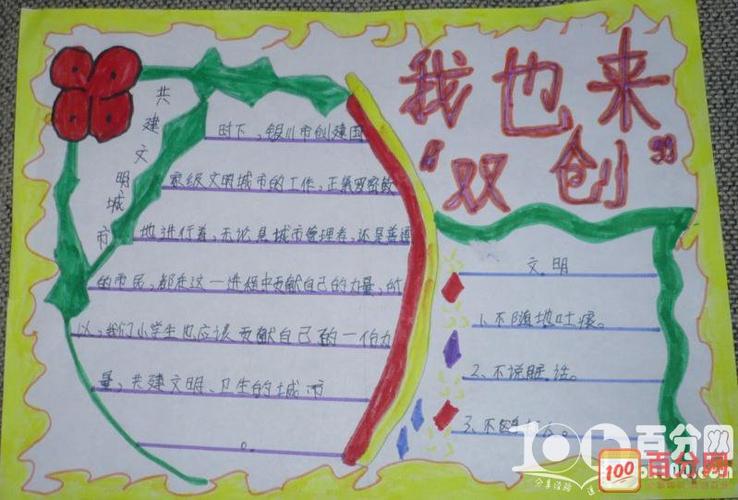 我也来
"双创"
共建文明城市
时下，银川市创建国
家级文明城市的工作，正紧
地进行着，无论是城市管理者，还是普通
的市民，都在这一进程中贡献自己的力量，所
以，我们小学生也应该贡献自己的一份力
量，共建文明、卫生的城市
。
文明
1、不随地吐痰。
2、不说脏话。
3、不
100百分网
100
百分网